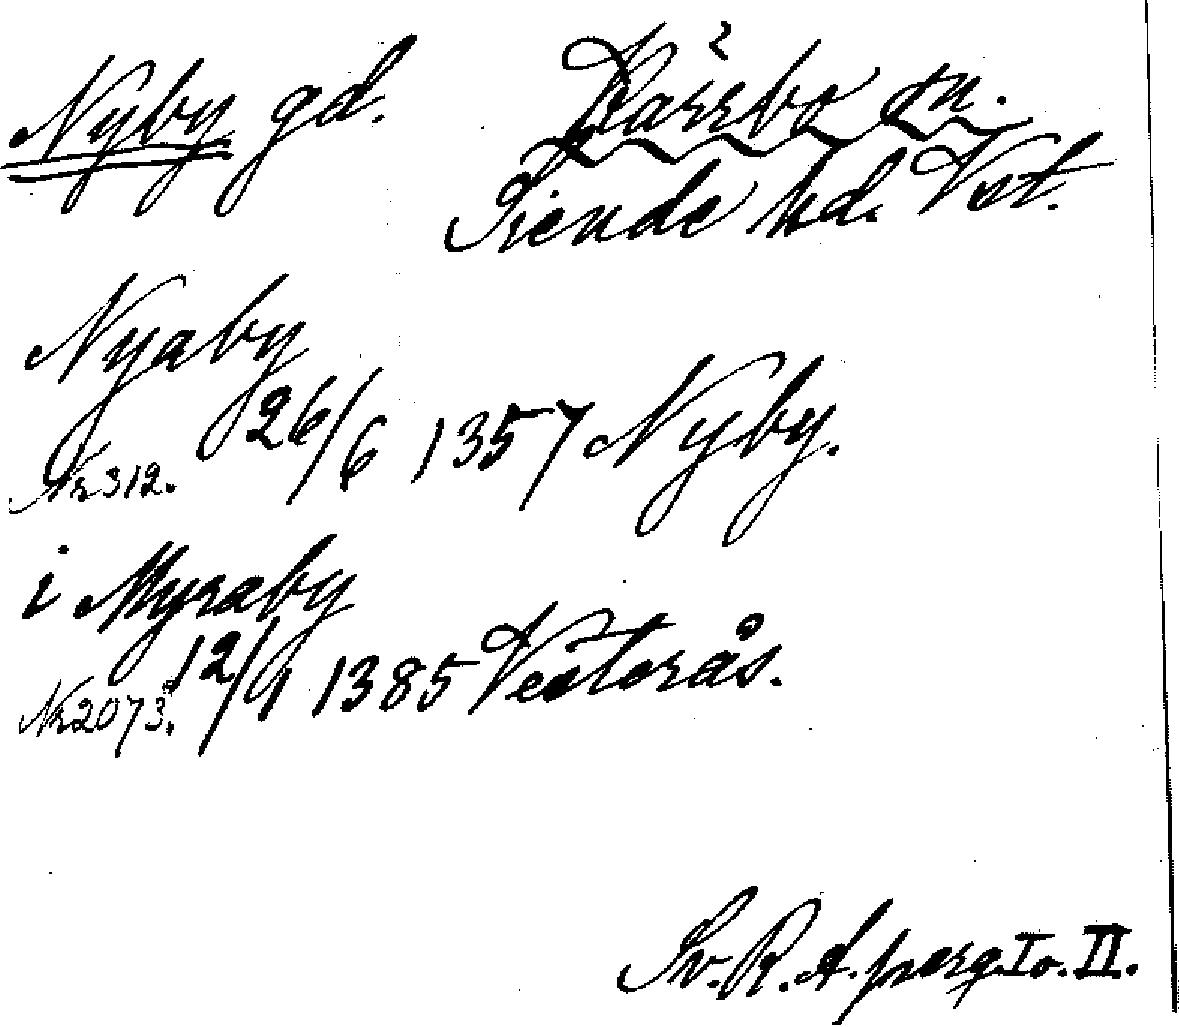 Nyby gd. Karrbo sn.
Siende hd. Vst.
Nyaby
26/6 1357 Nyby.
Nr 312.
i Nyraby
12/9 1385 Vesterås.
Nr 2073.
Sv. R. A. perg. I o. II.